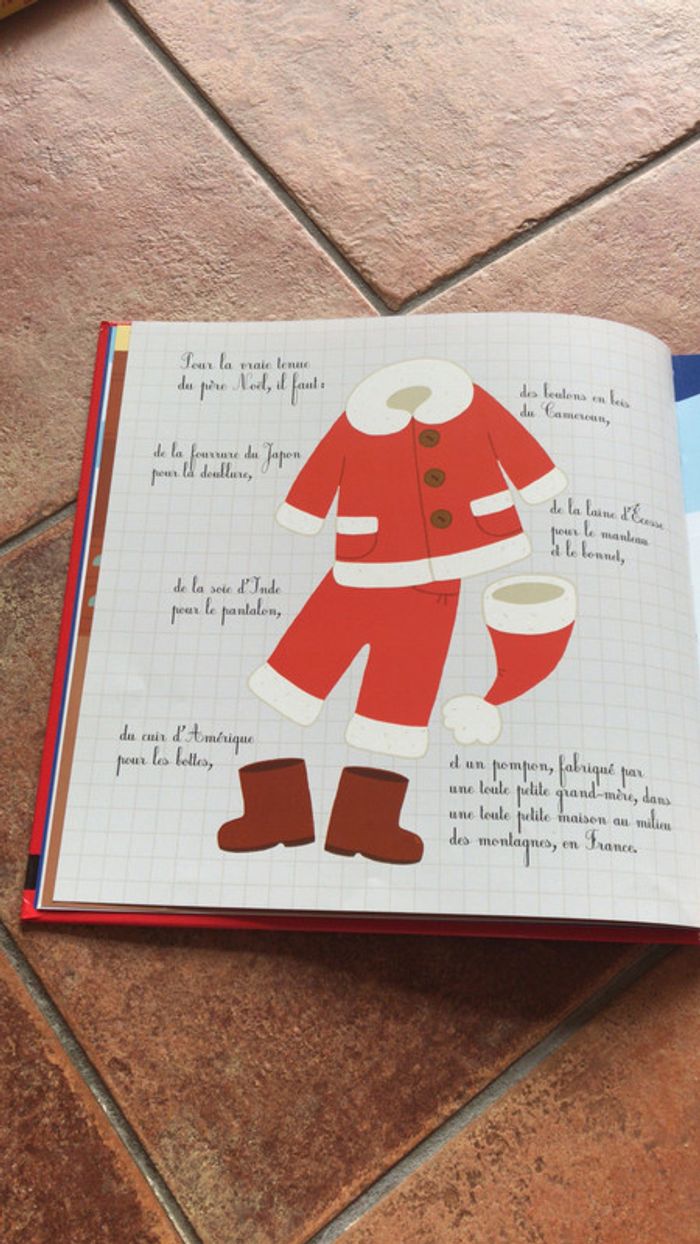 Pour la vraie tenue
du père Noël, il faut :
des boutons en bois
du Cameroun,
de la fourrure du Japon
pour la doublure,
de la laine d'Écosse
pour le manteau
et le bonnet,
de la soie d'Inde
pour le pantalon,
du cuir d'Amérique
pour les bottes,
et un pompon, fabriqué par
une toute petite grand-mère, dans
une toute petite maison au milieu
des montagnes, en France.